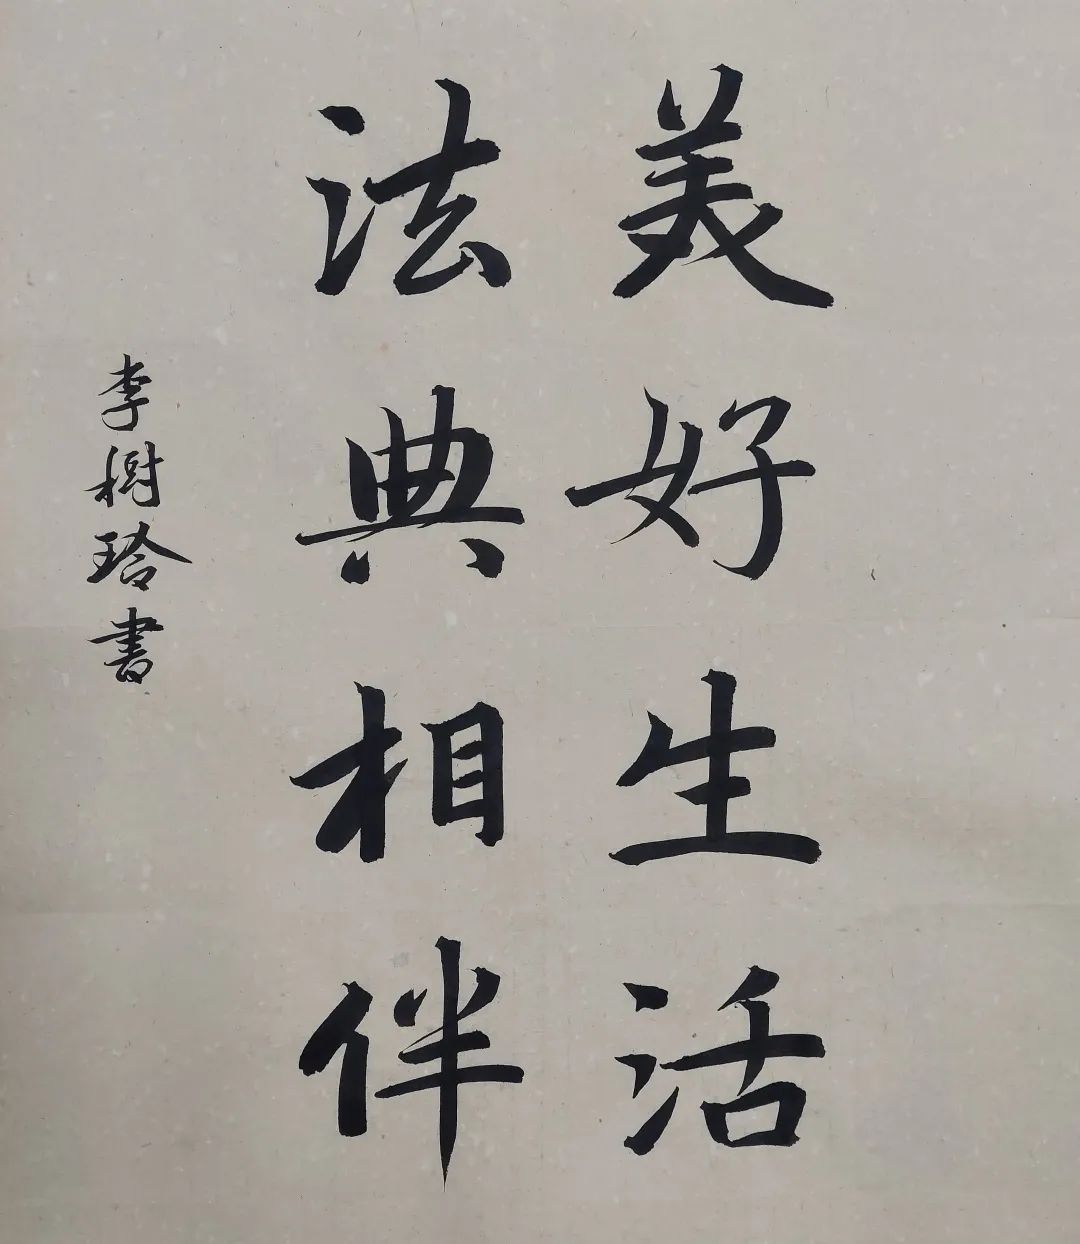 美好生活
法典相伴
李樹玲書